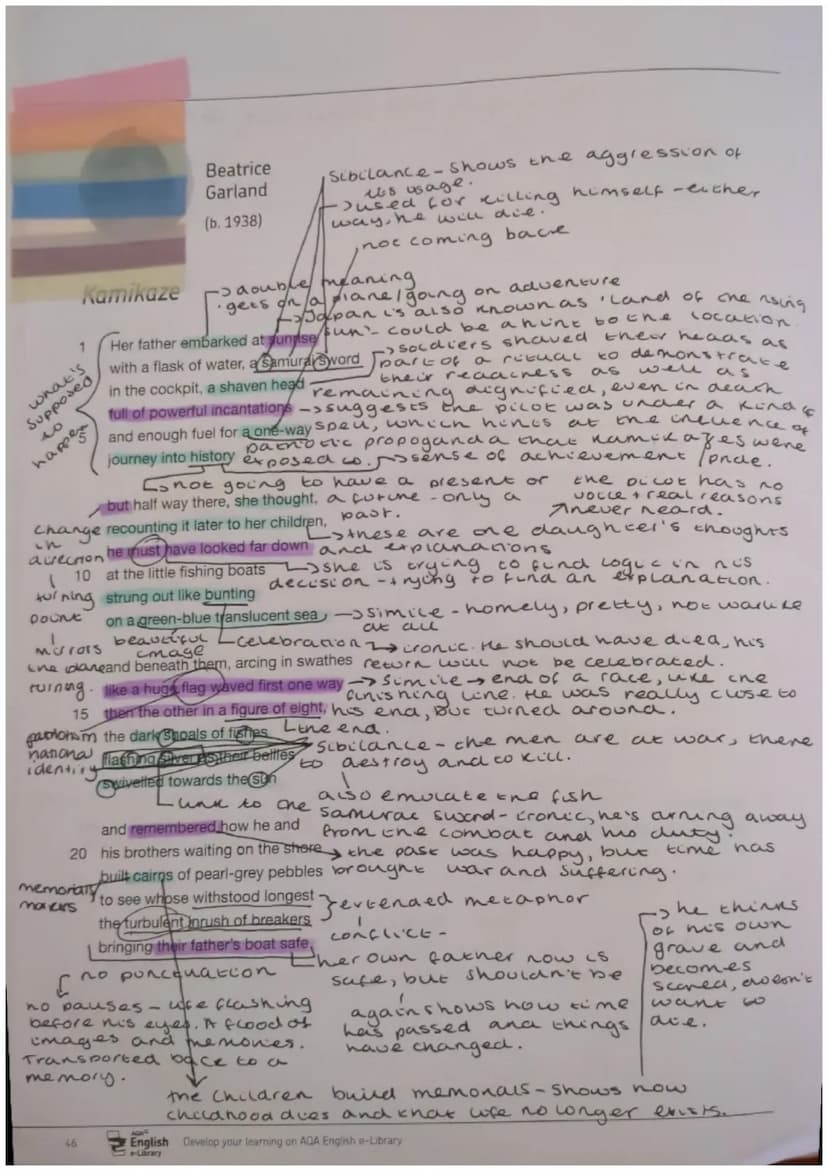 Beatrice
Garland
(b. 1938)
sibilance - shows the aggression of
its usage.
→ used for killing himself - either
way, he will die.
not coming back
Kamikaze
→ double meaning
· gets on a plane / going on adventure
→ Japan is also known as 'land of the rising
sun' - could be a hint to the location.
1 Her father embarked at sunrise
with a flask of water, a samurai sword
in the cockpit, a shaven head
full of powerful incantations
5 and enough fuel for a one-way
journey into history
what's
supposed
to
happen
→ soldiers shaved their heads as
part of a ritual to demonstrate
their readiness as well as
remaining dignified, even in death
→ suggests the pilot was under a kind of
spell, which hints at the influence of
patriotic propaganda that kamikazes were
exposed to. → sense of achievement / pride.
→ not going to have a present or
a future - only a
past.
the pilot has no
voice + real reasons
never heard.
but half way there, she thought,
recounting it later to her children,
he must have looked far down
10 at the little fishing boats
strung out like bunting
on a green-blue translucent sea
change
in
direction
turning
point
mirrors
the plane
turning.
→ these are the daughter's thoughts
and explanations
→ she is trying to find logic in his
decision - trying to find an explanation.
→ simile - homely, pretty, not warlike
at all
beautiful
image
celebration → ironic. He should have died, his
return will not be celebrated.
and beneath them, arcing in swathes
like a huge flag waved first one way
15 then the other in a figure of eight,
the dark shoals of fishes
flashing silver as their bellies
swivelled towards the sun
→ simile → end of a race, like the
finishing line. He was really close to
his end, but turned around.
the end.
patriotism
national
identity
sibilance - the men are at war, there
to destroy and to kill.
also emulate the fish
link to the
samurai sword - ironic, he's turning away
from the combat and his duty.
and remembered how he and
20 his brothers waiting on the shore
built cairns of pearl-grey pebbles
to see whose withstood longest
the turbulent inrush of breakers
bringing their father's boat safe
→ the past was happy, but time has
brought war and suffering.
memorials
makers
extended metaphor
conflict -
her own father now is
safe, but shouldn't be
again shows how time
has passed and things
have changed.
→ he thinks
of his own
grave and
becomes
scared, doesn't
want to
die.
no punctuation
no pauses - life flashing
before his eyes. A flood of
images and memories.
Transported back to a
memory.
the children build memorials - shows how
childhood dies and that life no longer exists.
46 AQA English e-Library Develop your learning on AQA English e-Library